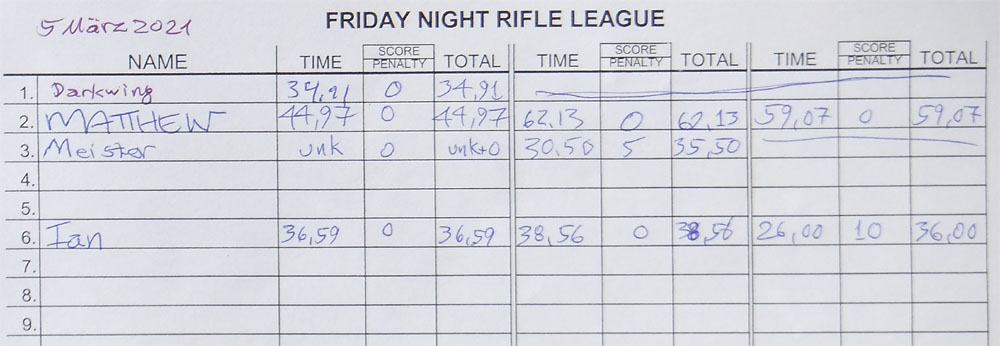 5 März 2021
FRIDAY NIGHT RIFLE LEAGUE
NAME TIME SCORE PENALTY TOTAL TIME SCORE PENALTY TOTAL TIME SCORE PENALTY TOTAL
1. Darkwing 34,91 0 34,91
2. MATTHEW 44,97 0 44,97 62,13 0 62,13 59,07 0 59,07
3. Meister unk 0 unk+0 30,50 5 35,50
4.
5.
6. Ian 36,59 0 36,59 38,56 0 38,56 26,00 10 36,00
7.
8.
9.